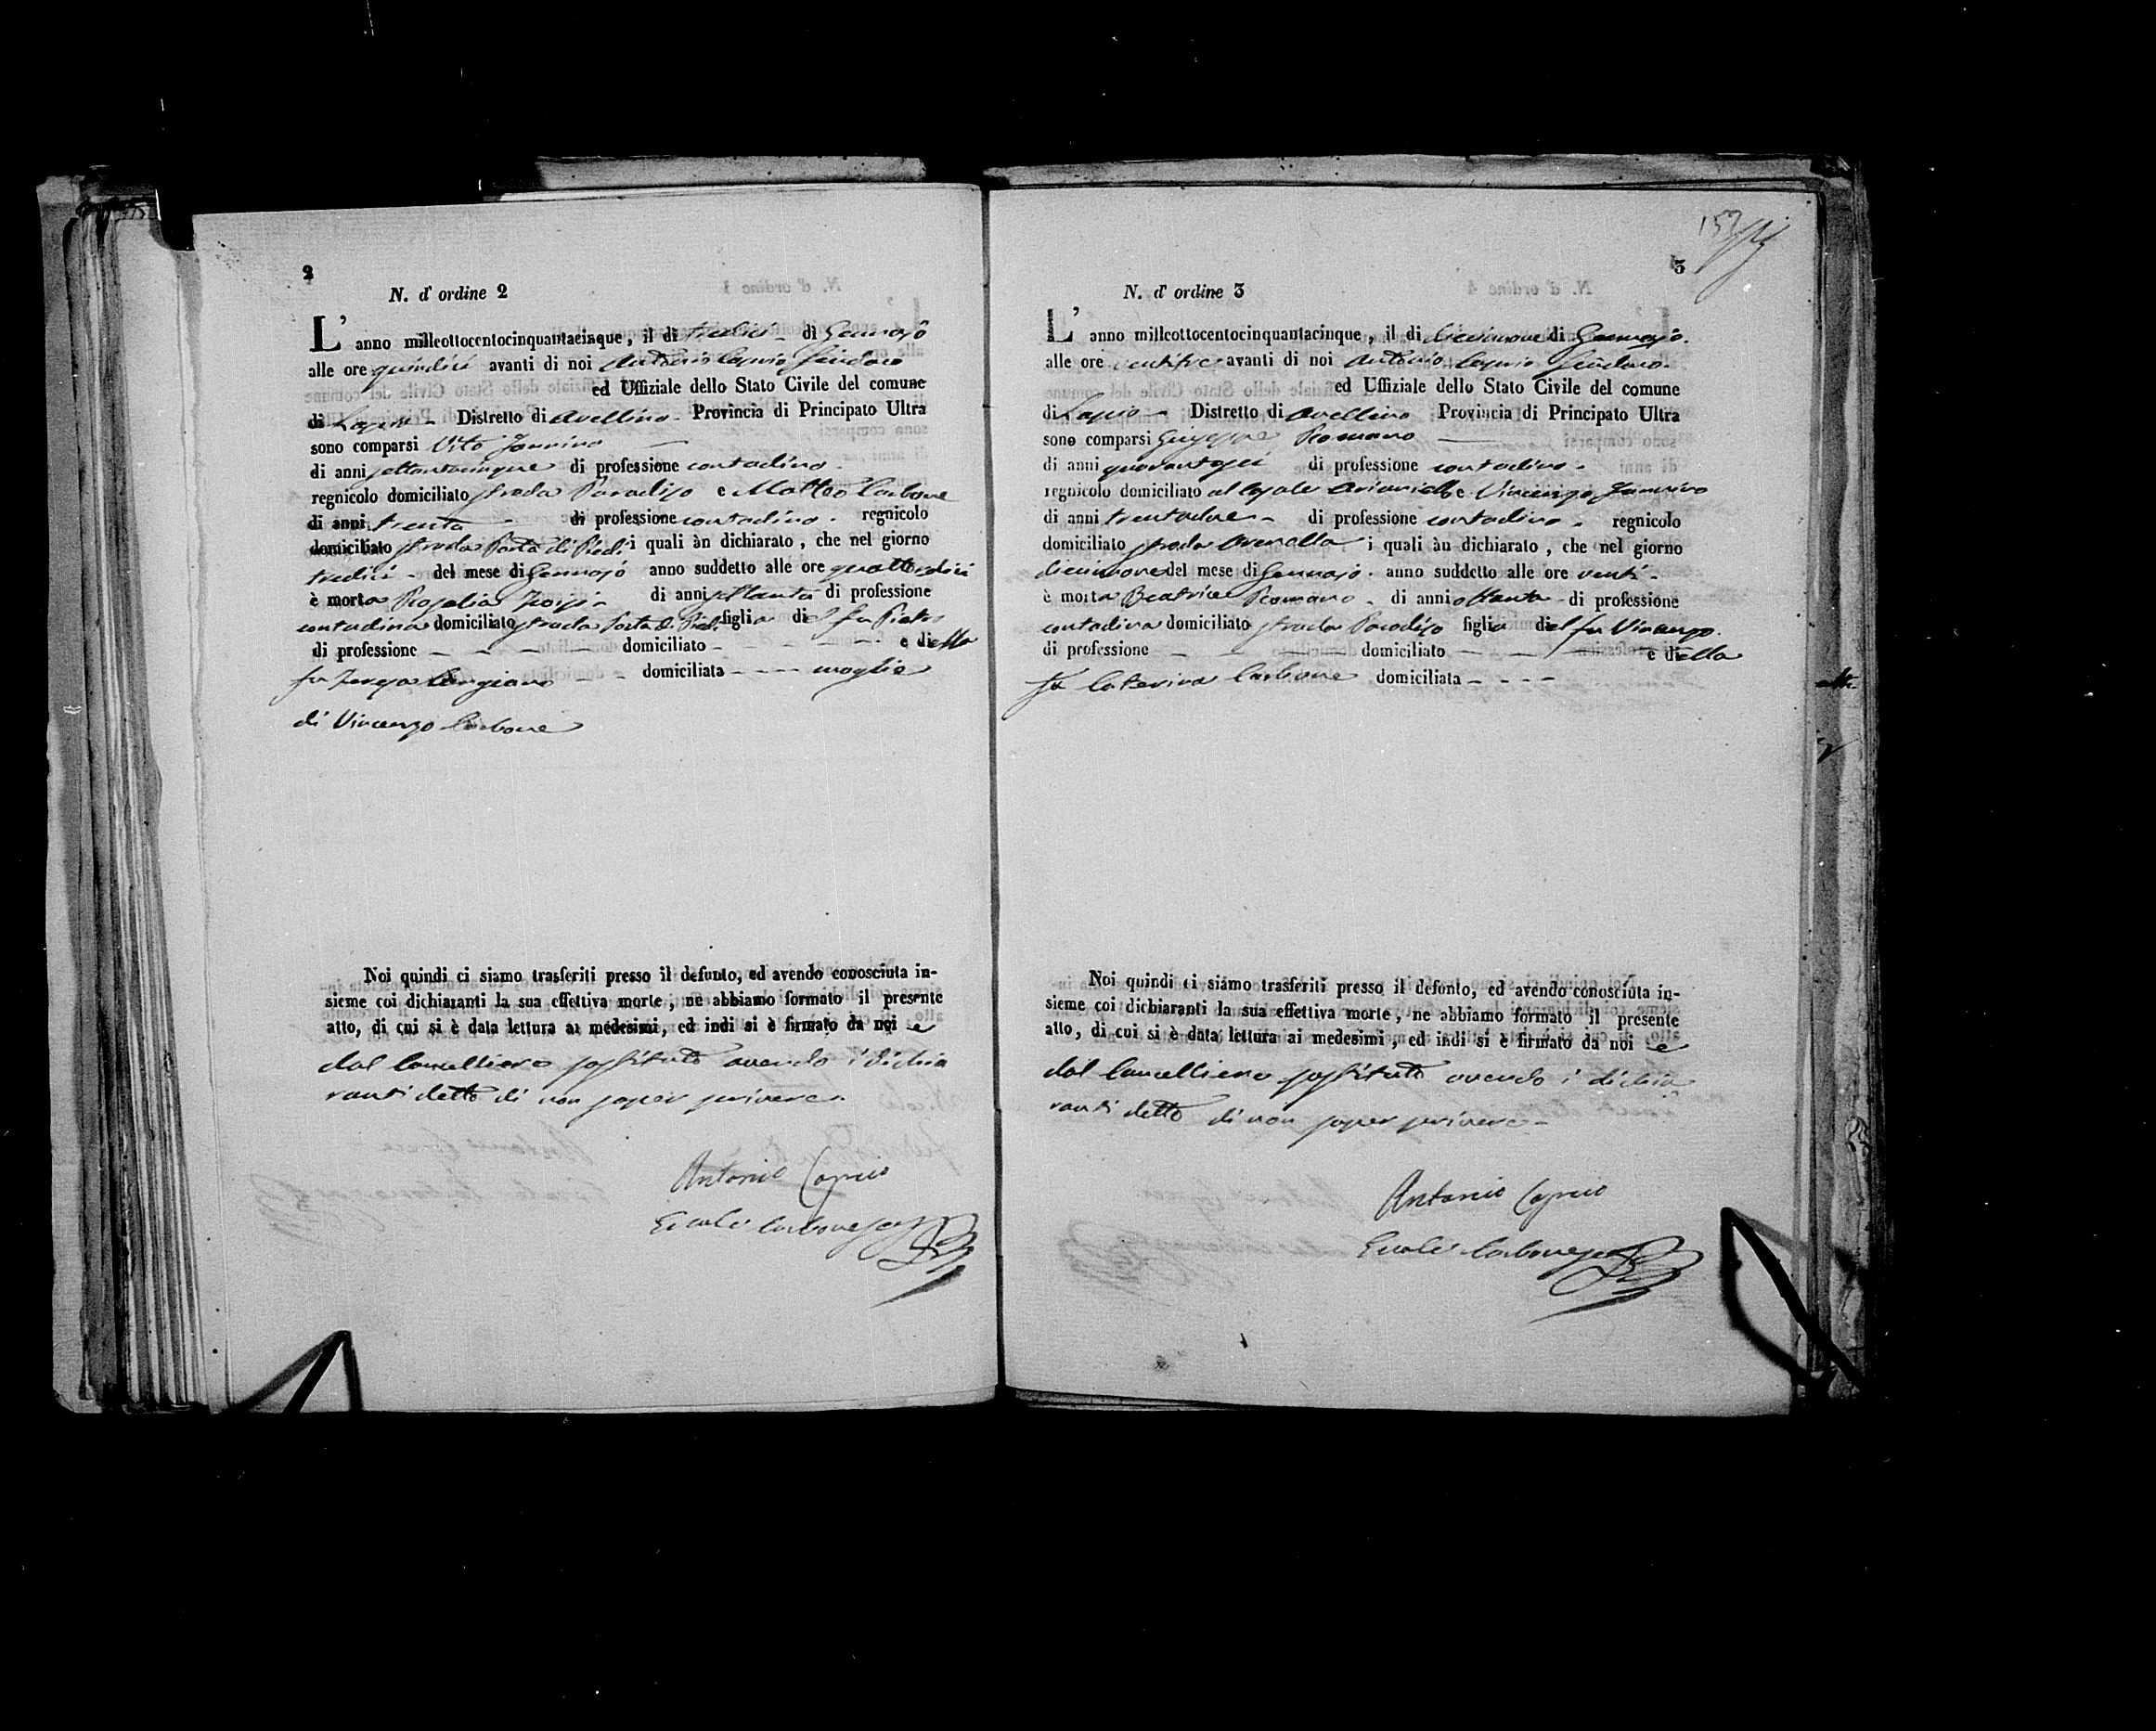 2
N. d' ordine 2
L' anno milleottocentocinquantacinque, il di tredici di Gennajo
alle ore quindici avanti di noi Antonio Caprio Sindaco
ed Uffiziale dello Stato Civile del comune
di Lapio Distretto di Avellino Provincia di Principato Ultra
sono comparsi Vito Jannino
di anni settantacinque di professione contadino
regnicolo domiciliato strada Paradiso e Matteo Carbone
di anni trenta di professione contadino regnicolo
domiciliato strada Porta di Piedi i quali àn dichiarato, che nel giorno
tredici del mese di Gennajo anno suddetto alle ore quattordici
è morta Rosalia di anni settanta di professione
contadina domiciliato strada Porta di Piedi figlia del fu Pietro
di professione domiciliato e della
fu Teresa domiciliata moglie
di Vincenzo Carbone
Noi quindi ci siamo trasferiti presso il defunto, ed avendo conosciuta in-
sieme coi dichiaranti la sua effettiva morte, ne abbiamo formato il presente
atto, di cui si è data lettura ai medesimi, ed indi si è firmato da noi e
dal Cancelliere sostituto avendo i dichia
ranti detto di non saper scrivere
Antonio Caprio
Carbone
3
N. d' ordine 3
L' anno milleottocentocinquantacinque, il di diecinove di Gennajo
alle ore ventitre avanti di noi Antonio Caprio Sindaco
ed Uffiziale dello Stato Civile del comune
di Lapio Distretto di Avellino Provincia di Principato Ultra
sono comparsi Giuseppe Romano
di anni quarantasei di professione contadino
regnicolo domiciliato al Casale Arianiello e Vincenzo Jannino
di anni trentadue di professione contadino regnicolo
domiciliato strada i quali àn dichiarato, che nel giorno
diecinove del mese di Gennajo anno suddetto alle ore venti
è morta Beatrice Romano di anni ottanta di professione
contadina domiciliato strada Paradiso figlia del fu Vincenzo
di professione domiciliato e della
fu Caterina Carbone domiciliata
Noi quindi ci siamo trasferiti presso il defunto, ed avendo conosciuta in-
sieme coi dichiaranti la sua effettiva morte, ne abbiamo formato il presente
atto, di cui si è data lettura ai medesimi, ed indi si è firmato da noi e
dal Cancelliere sostituto avendo i dichia
ranti detto di non saper scrivere
Antonio Caprio
Carbone